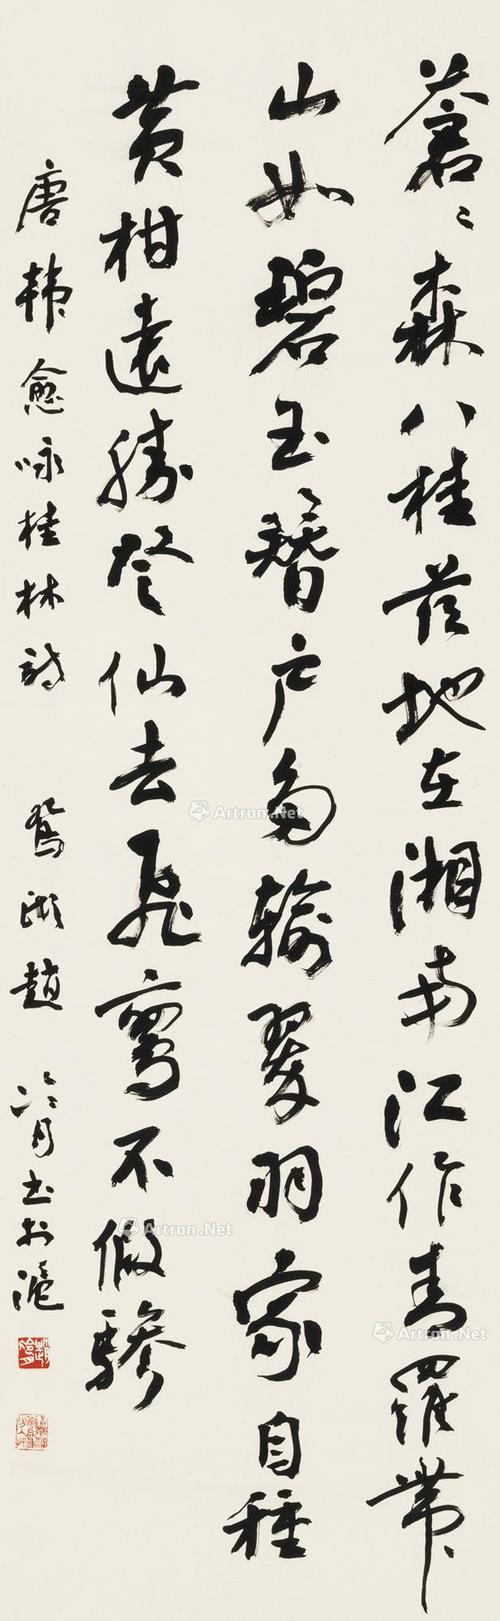 蒼〻森八桂茲地在湘南江作青羅帶
山如碧玉簪戶多輸翠羽家自種
黃柑遠勝登仙去飛鸞不假驂
唐韓愈咏桂林詩 鴛湖趙冷月書於滬
Artron.Net
Artron.Net
Artron.Net